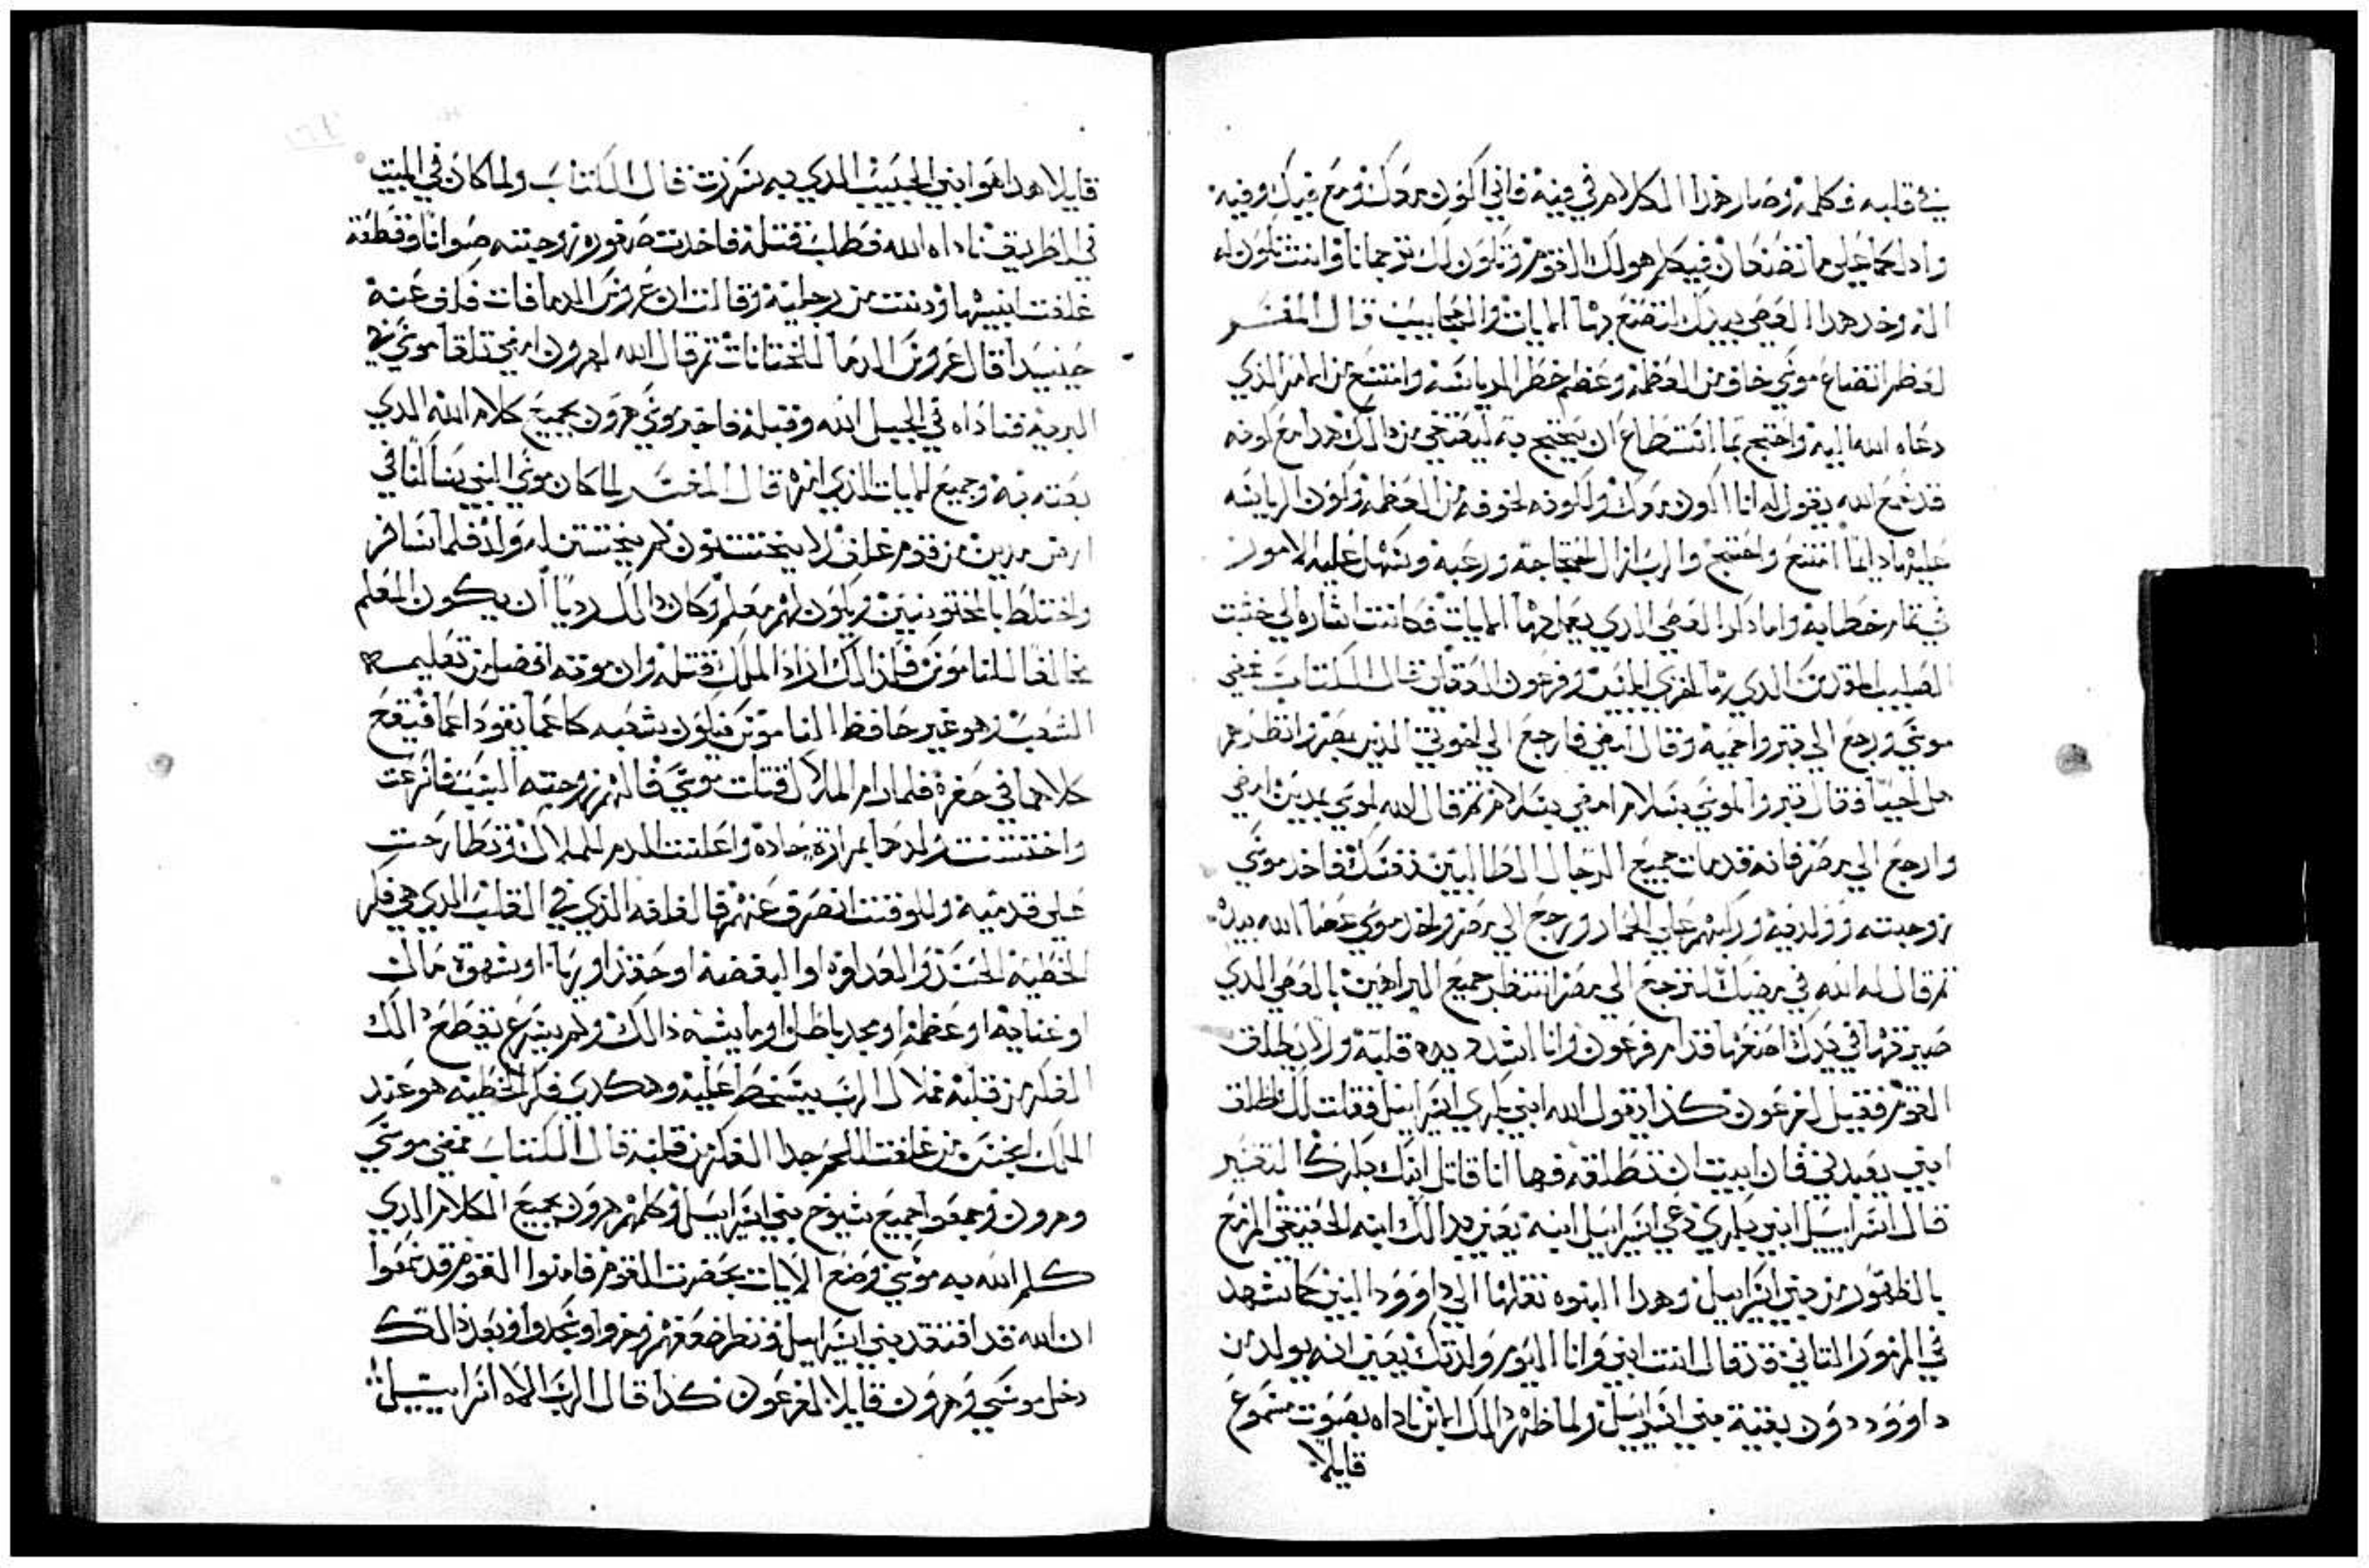 في قلبه فكلمه وصار هذا الكلام في فيه فاني اكون معك ومع فيك وفيه
وادلكما علي ما تصنعان فيكلم هو لك القوم ويكون لك ترجمانا وانت تكون له
اله وخذ هذا العصي بيدك لتصنع بها الايات والعجايب قال المفسر
لعظم اتضاع موسي خاف من العظمه وعظم خطر الرياسه وامتنع من الامر الذي
دعاه الله اليه واحتج بما استطاع ان يحتج به ليعتفي من ذالك هذا مع كونه
قد سمع الله يقول له انا اكون معك ولكونه لخوفه من العظمه ولكون الرياسه
عليه امتنع واحتج والرب ازال احتجاجه ورغبه وسهل عليه الامور
في تمام خطابه واما ذكر العصي الذي يعمل بها الايات فكانت اشاره الي خشبت
الصليب المقدس الذي بها اخزي ابليس فرعون العقلي قال الكتاب فمضي
موسي ورجع الي يترو احميه وقال امضي فارجع الي اخوتي الذين بمصر انظر هم
هل احيا فقال يترو الموسي بسلام امضي بسلام ثم قال الله لموسي بمدين امضي
وارجع الي مصر فانه قد مات جميع الرجال الطالبين نفسك فاخذ موسي
زوجته وولديه وركبهم علي الحمار ورجع الي مصر واخذ موسي عصا الله بيده
ثم قال له الله في مضيك لترجع الي مصر انتظر جميع البراهين بالعصي الذي
صيرتها في يدك اصنعها قدام فرعون وانا اشدد يده قلبه ولا يطلق
القوم فقيل لفرعون كذا يقول الله ابني بكري اسراييل فقلت لك اطلق
ابني يعبدني فان ابيت ان تطلقه فها انا قاتل ابنك بكرك التفسير
قال اسراييل ابني بكري دعي اسراييل ابنه يعني بذالك ابنه الحقيقي المزمع
بالظهور من بني اسراييل وهذا البنوه نقلها الي داوود النبي كما تشهد
في المزمور التاني قد قال انت ابني وانا اليوم ولدتك يعني انه يولد من
داوود دون بقية بني اسراييل ولما ظهر ذالك الابن ناداه بصوت مسموع
قايلا
قايلا هدا هو ابني الحبيب الدي به سررت قال الكتاب ولما كان في المبيت
في الطريق ناداه الله فطلب قتله فاخدت صفوره زوجته صوانا وقطعة
غلفت ابنها ودنت من رجليه وقالت ان عروس الدما فات فكف عنه
حينيد قال عروس الدما للختانات ثم قال الله لهرون امضي تلقا موسي في
البريه فناداه في الجبل الله وقبله فاخبر موسي هرون بجميع كلام الله الدي
بعته به وجميع الايات الذي امره قال المفسر لما كان موسي النبي ساكنا في
ارض مدين من قوم غلف لا يختتنون لم يختتن له ولد فلما سافر
واختلط بالمختونين ويكون لهم معلم وكان ذالك رديا ان يكون المعلم
مخالفا للناموس فلذالك اراد الملك قتله وان موته افضل من تعليمه
الشعب وهو غير حافظ الناموس فيكون بشعبه كاعما يقود اعما فيقع
كلاهما في حفره فلما رام الملاك قتلت موسي فالهم زوجته السبب فاسرعت
واختتنت ولدها بمرازه حاده واعلنت الدم للملاك وتطارحت
علي قدميه وللوقت انصرف عنهم فالغلفه الذي في القلب الدي هي فكر
الخطيه الحسد والعداوه او البغضه او حقد او ربا او شهوة مالك
او غنايه او عظمه او مجد باطل او ما يشبه ذالك ولم يسرع بقطع ذالك
الفكر من قلبه فملاك الرب يسخط عليه وهكدي فكر الخطيه هو عند
الملاك انجس من غلفت اللحم جدا الفكر من قلبه قال الكتاب فمضي موسي
وهرون وجمعوا جميع شيوخ بني اسراييل وكلمهم هرون بجميع الكلام الدي
كلم الله به موسي وصنع الايات بحضرت القوم فامنوا القوم قد سمعوا
ان الله قد افتقد بني اسراييل ونظر ضعفهم وخروا وسجدوا وبعد ذالك
دخل موسي وهرون قايلا لفرعون كدا قال الرب الاه اسراييل